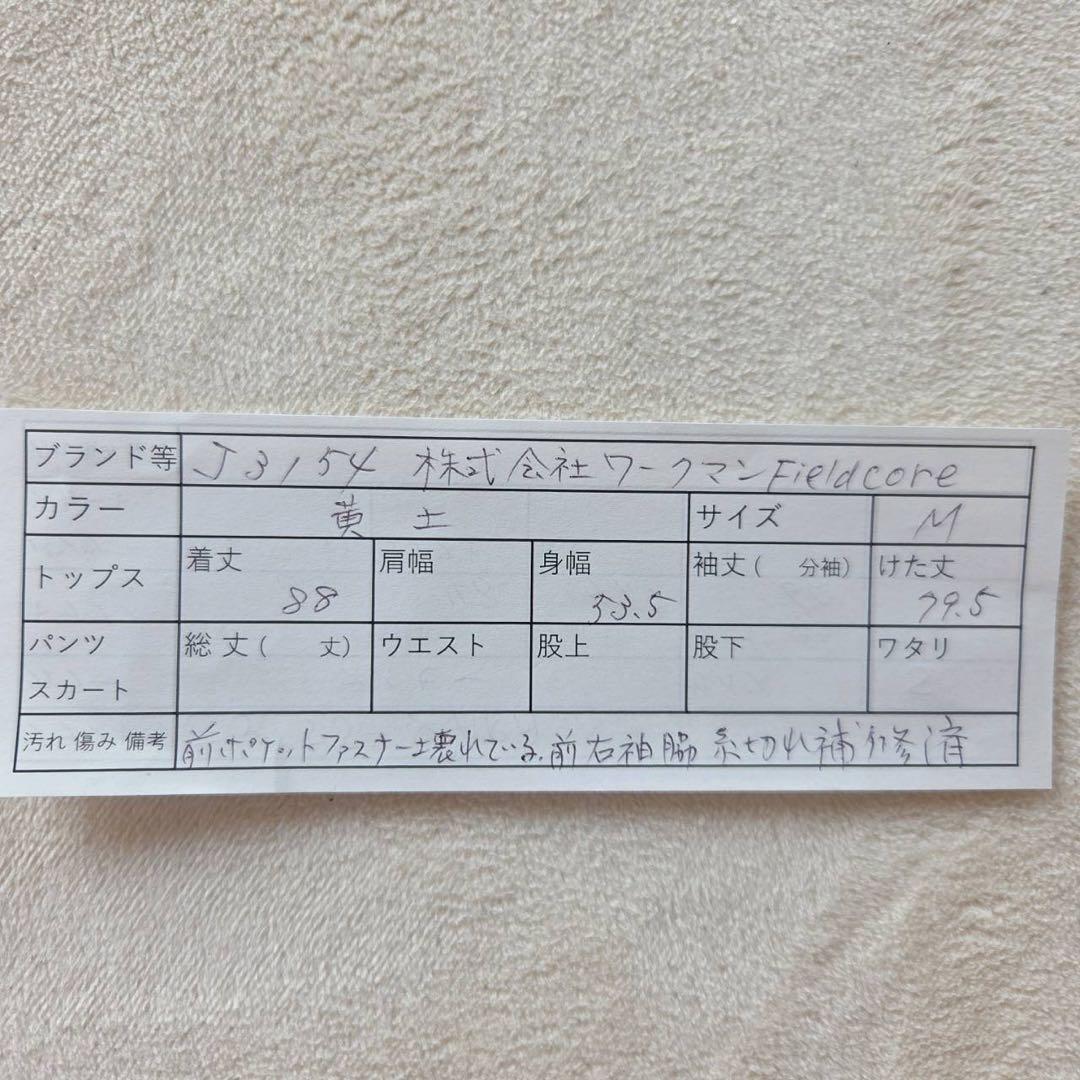 ブランド等 J3154 株式会社ワークマンFieldcore
カラー 黄土 サイズ M
トップス 着丈 88 肩幅 身幅 53.5 袖丈( 分袖) けた丈 79.5
パンツ 総丈( 丈) ウエスト 股上 股下 ワタリ
スカート
汚れ 傷み 備考 前ポケットファスナー壊れている、前右袖脇 糸切れ補修済